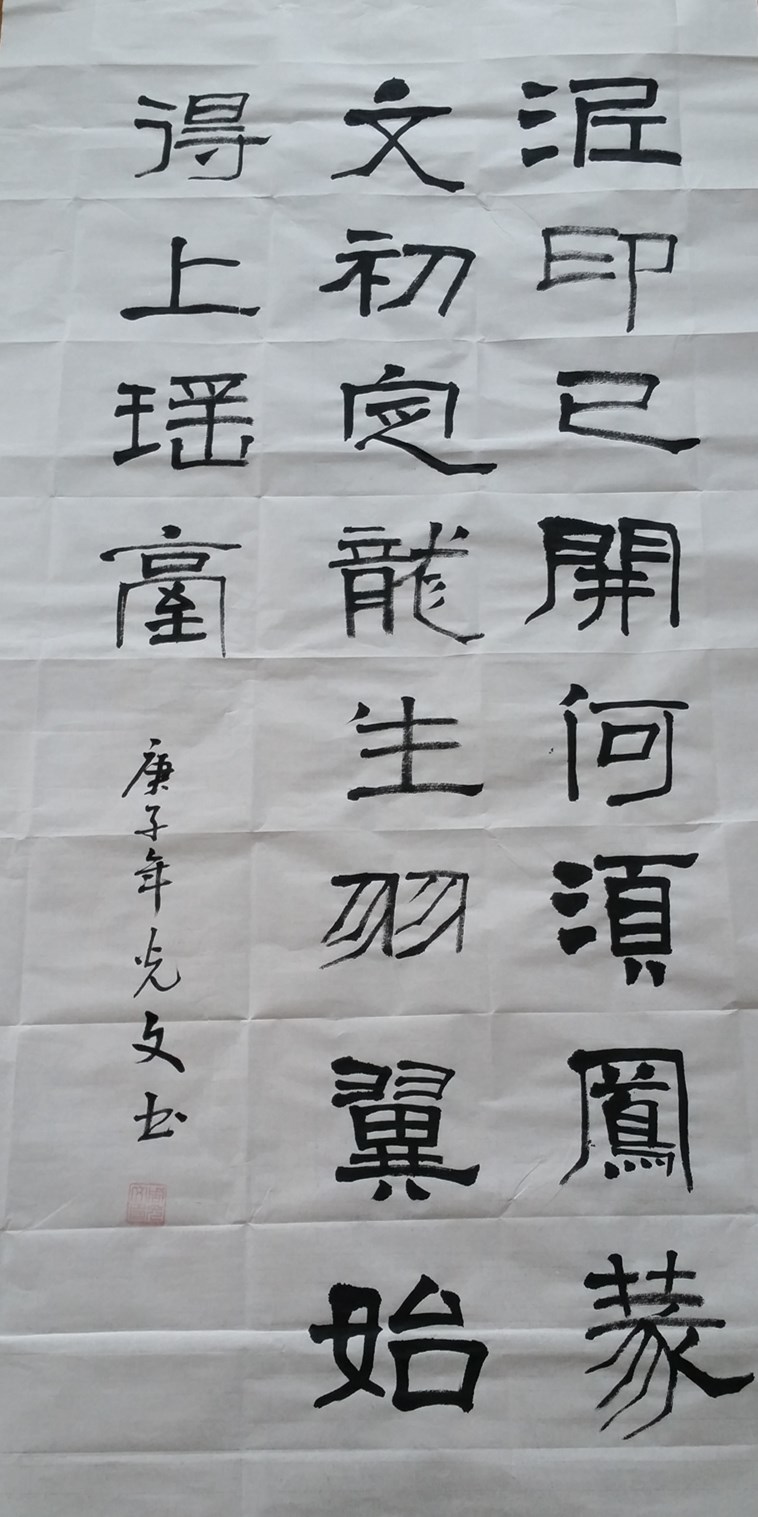 泥印已開何須鳳篆
文初定龍生羽翼始
得上瑶臺
庚子年光文书